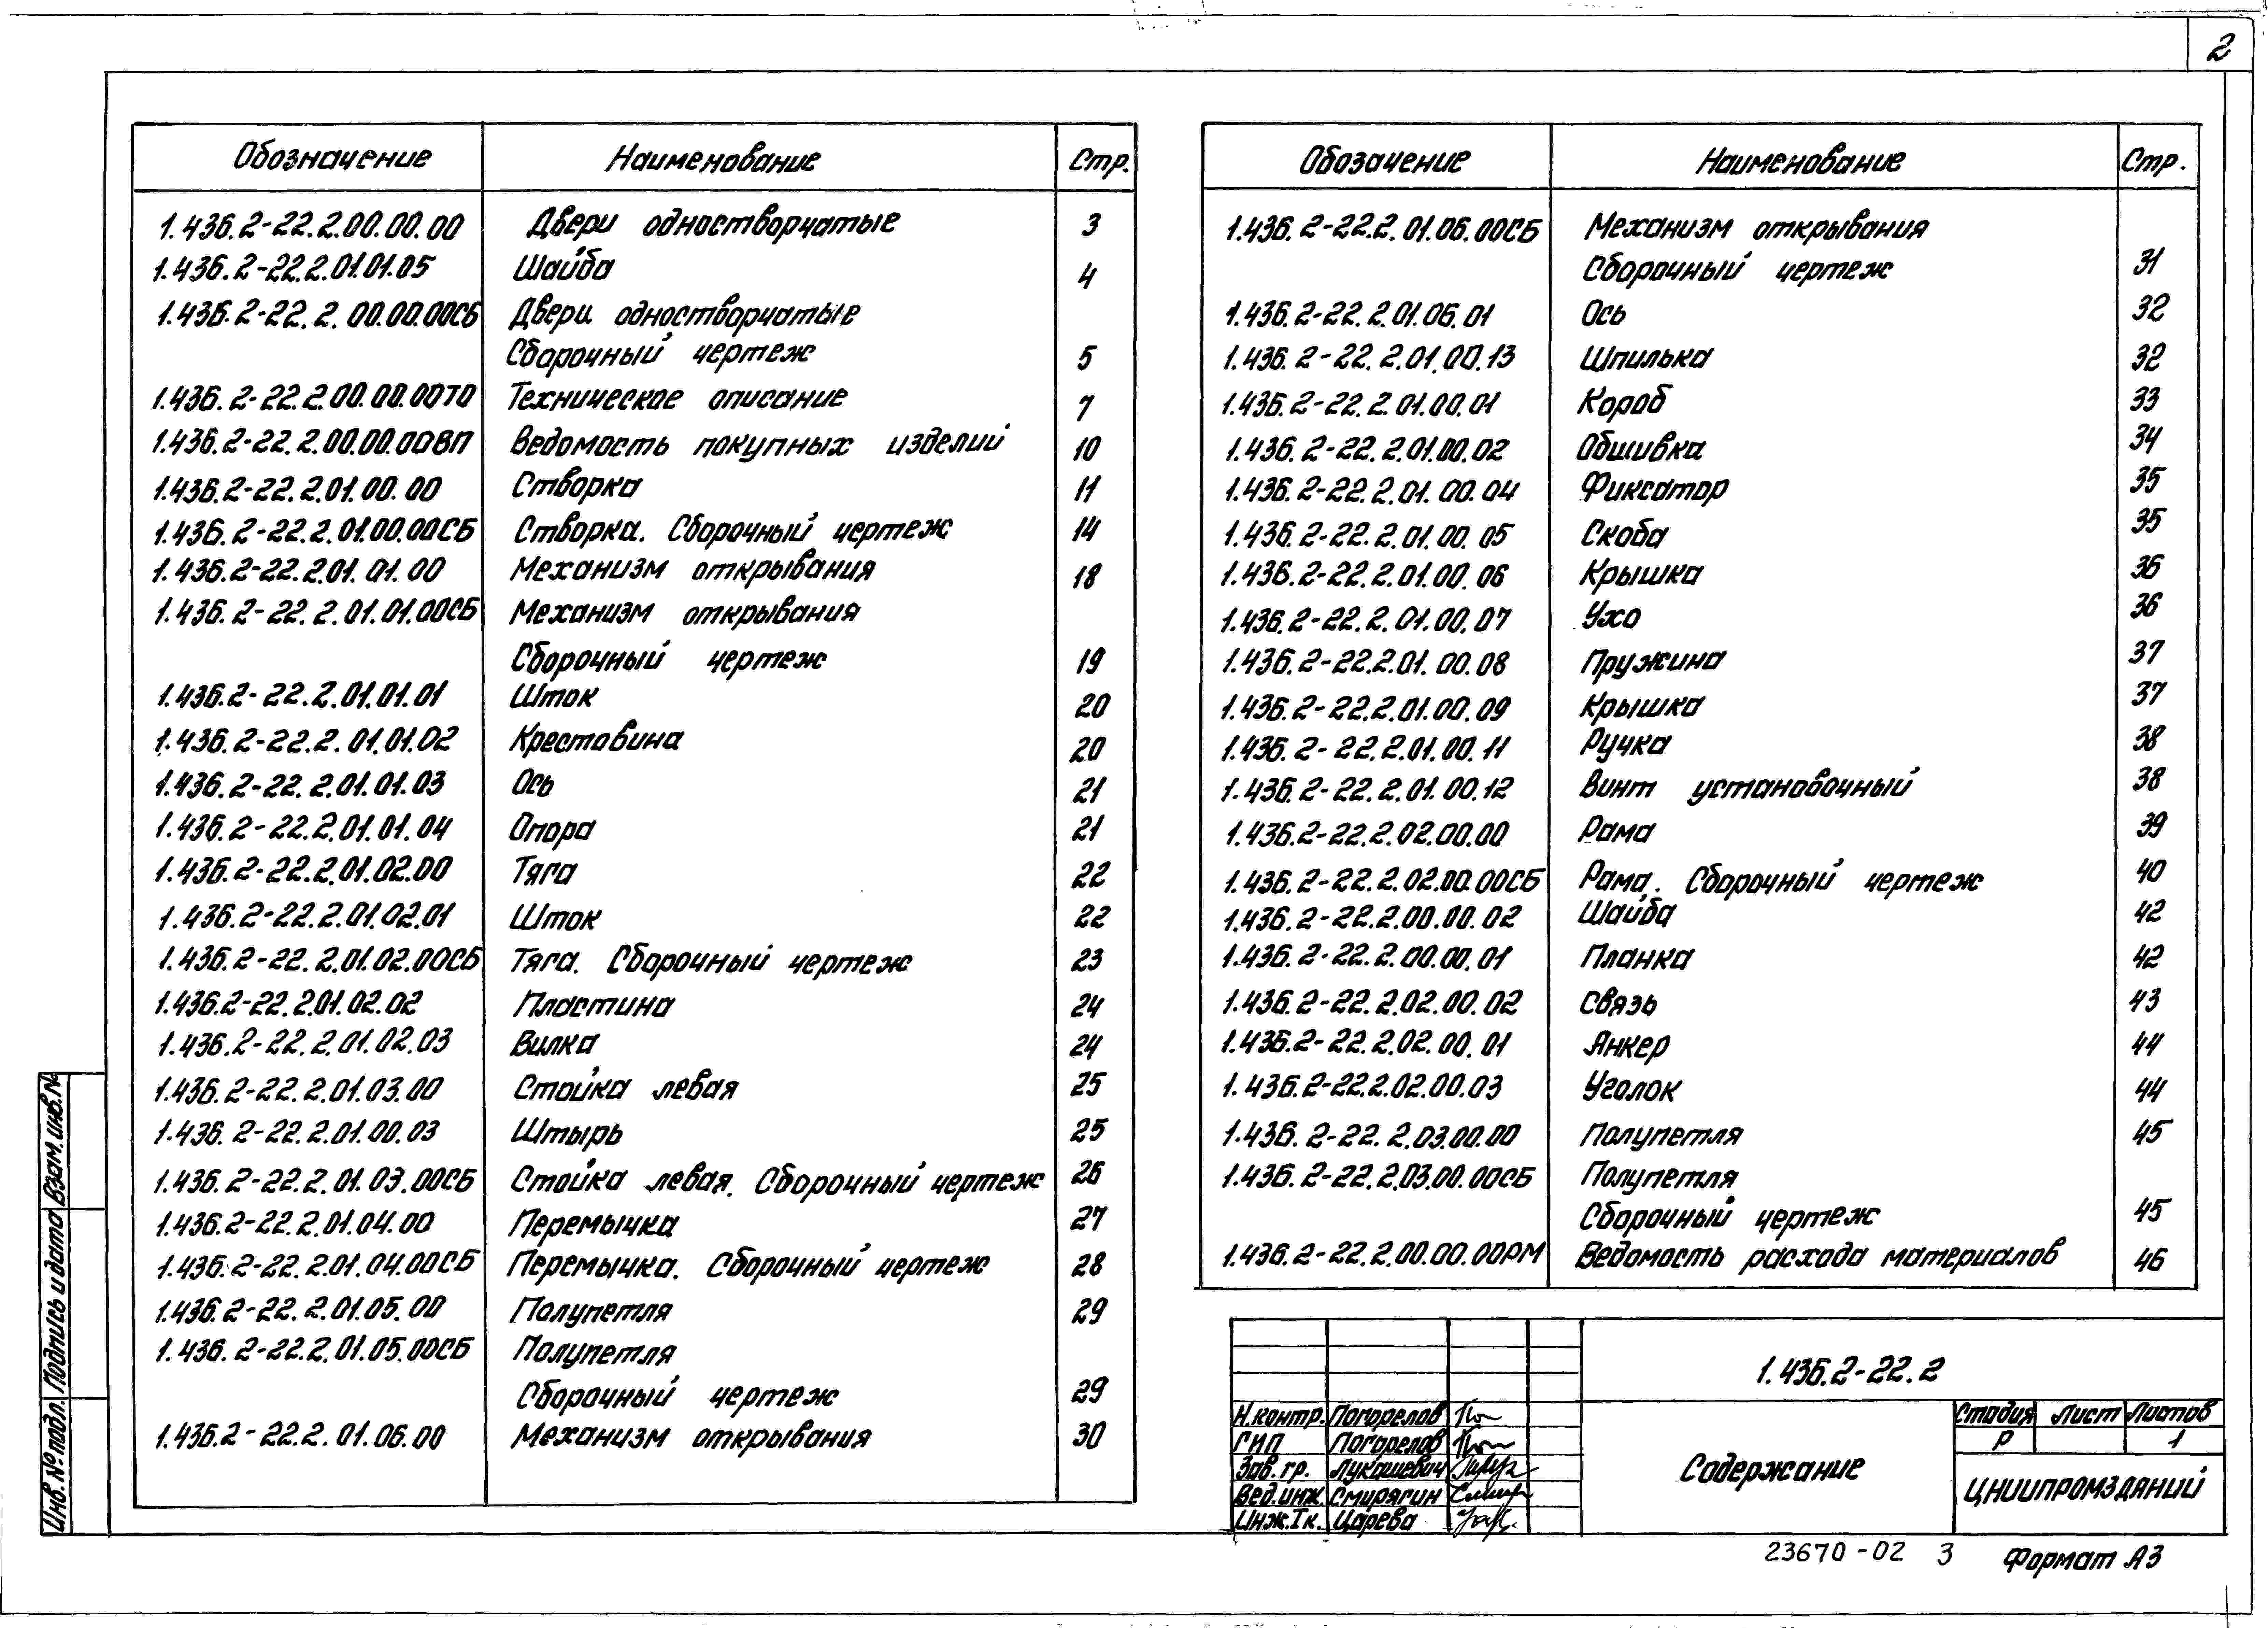 2
Обозначение Наименование Стр.
1.436.2-22.2.00.00.00 Двери одностворчатые 3
1.436.2-22.2.01.01.05 Шайба 4
1.436.2-22.2.00.00.00СБ Двери одностворчатые
Сборочный чертеж 5
1.436.2-22.2.00.00.00ТО Техническое описание 7
1.436.2-22.2.00.00.00ВП Ведомость покупных изделий 10
1.436.2-22.2.01.00.00 Створка 11
1.436.2-22.2.01.00.00СБ Створка. Сборочный чертеж 14
1.436.2-22.2.01.01.00 Механизм открывания 18
1.436.2-22.2.01.01.00СБ Механизм открывания
Сборочный чертеж 19
1.436.2-22.2.01.01.01 Шток 20
1.436.2-22.2.01.01.02 Крестовина 20
1.436.2-22.2.01.01.03 Ось 21
1.436.2-22.2.01.01.04 Опора 21
1.436.2-22.2.01.02.00 Тяга 22
1.436.2-22.2.01.02.01 Шток 22
1.436.2-22.2.01.02.00СБ Тяга. Сборочный чертеж 23
1.436.2-22.2.01.02.02 Пластина 24
1.436.2-22.2.01.02.03 Вилка 24
1.436.2-22.2.01.03.00 Стойка левая 25
1.436.2-22.2.01.00.03 Штырь 25
1.436.2-22.2.01.03.00СБ Стойка левая. Сборочный чертеж 26
1.436.2-22.2.01.04.00 Перемычка 27
1.436.2-22.2.01.04.00СБ Перемычка. Сборочный чертеж 28
1.436.2-22.2.01.05.00 Полупетля 29
1.436.2-22.2.01.05.00СБ Полупетля
Сборочный чертеж 29
1.436.2-22.2.01.06.00 Механизм открывания 30
Обозачение Наименование Стр.
1.436.2-22.2.01.06.00СБ Механизм открывания
Сборочный чертеж 31
1.436.2-22.2.01.06.01 Ось 32
1.436.2-22.2.01.00.13 Шпилька 32
1.436.2-22.2.01.00.01 Короб 33
1.436.2-22.2.01.00.02 Обшивка 34
1.436.2-22.2.01.00.04 Фиксатор 35
1.436.2-22.2.01.00.05 Скоба 35
1.436.2-22.2.01.00.06 Крышка 36
1.436.2-22.2.01.00.07 Ухо 36
1.436.2-22.2.01.00.08 Пружина 37
1.436.2-22.2.01.00.09 Крышка 37
1.436.2-22.2.01.00.11 Ручка 38
1.436.2-22.2.01.00.12 Винт установочный 38
1.436.2-22.2.02.00.00 Рама 39
1.436.2-22.2.02.00.00СБ Рама. Сборочный чертеж 40
1.436.2-22.2.00.00.02 Шайба 42
1.436.2-22.2.00.00.01 Планка 42
1.436.2-22.2.02.00.02 Связь 43
1.436.2-22.2.02.00.01 Анкер 44
1.436.2-22.2.02.00.03 Уголок 44
1.436.2-22.2.03.00.00 Полупетля 45
1.436.2-22.2.03.00.00СБ Полупетля
Сборочный чертеж 45
1.436.2-22.2.00.00.00РМ Ведомость расхода материалов 46
1.436.2-22.2
Н.контр. Погорелов
ГИП Погорелов
Зав.гр. Лукашевич
Вед.инж. Смирягин
Инж.Iк. Царева
Содержание
Стадия Лист Листов
Р 1
ЦНИИПРОМЗДАНИЙ
23670-02 3 Формат А3
Инв.№ подл. Подпись и дата Взам.инв.№